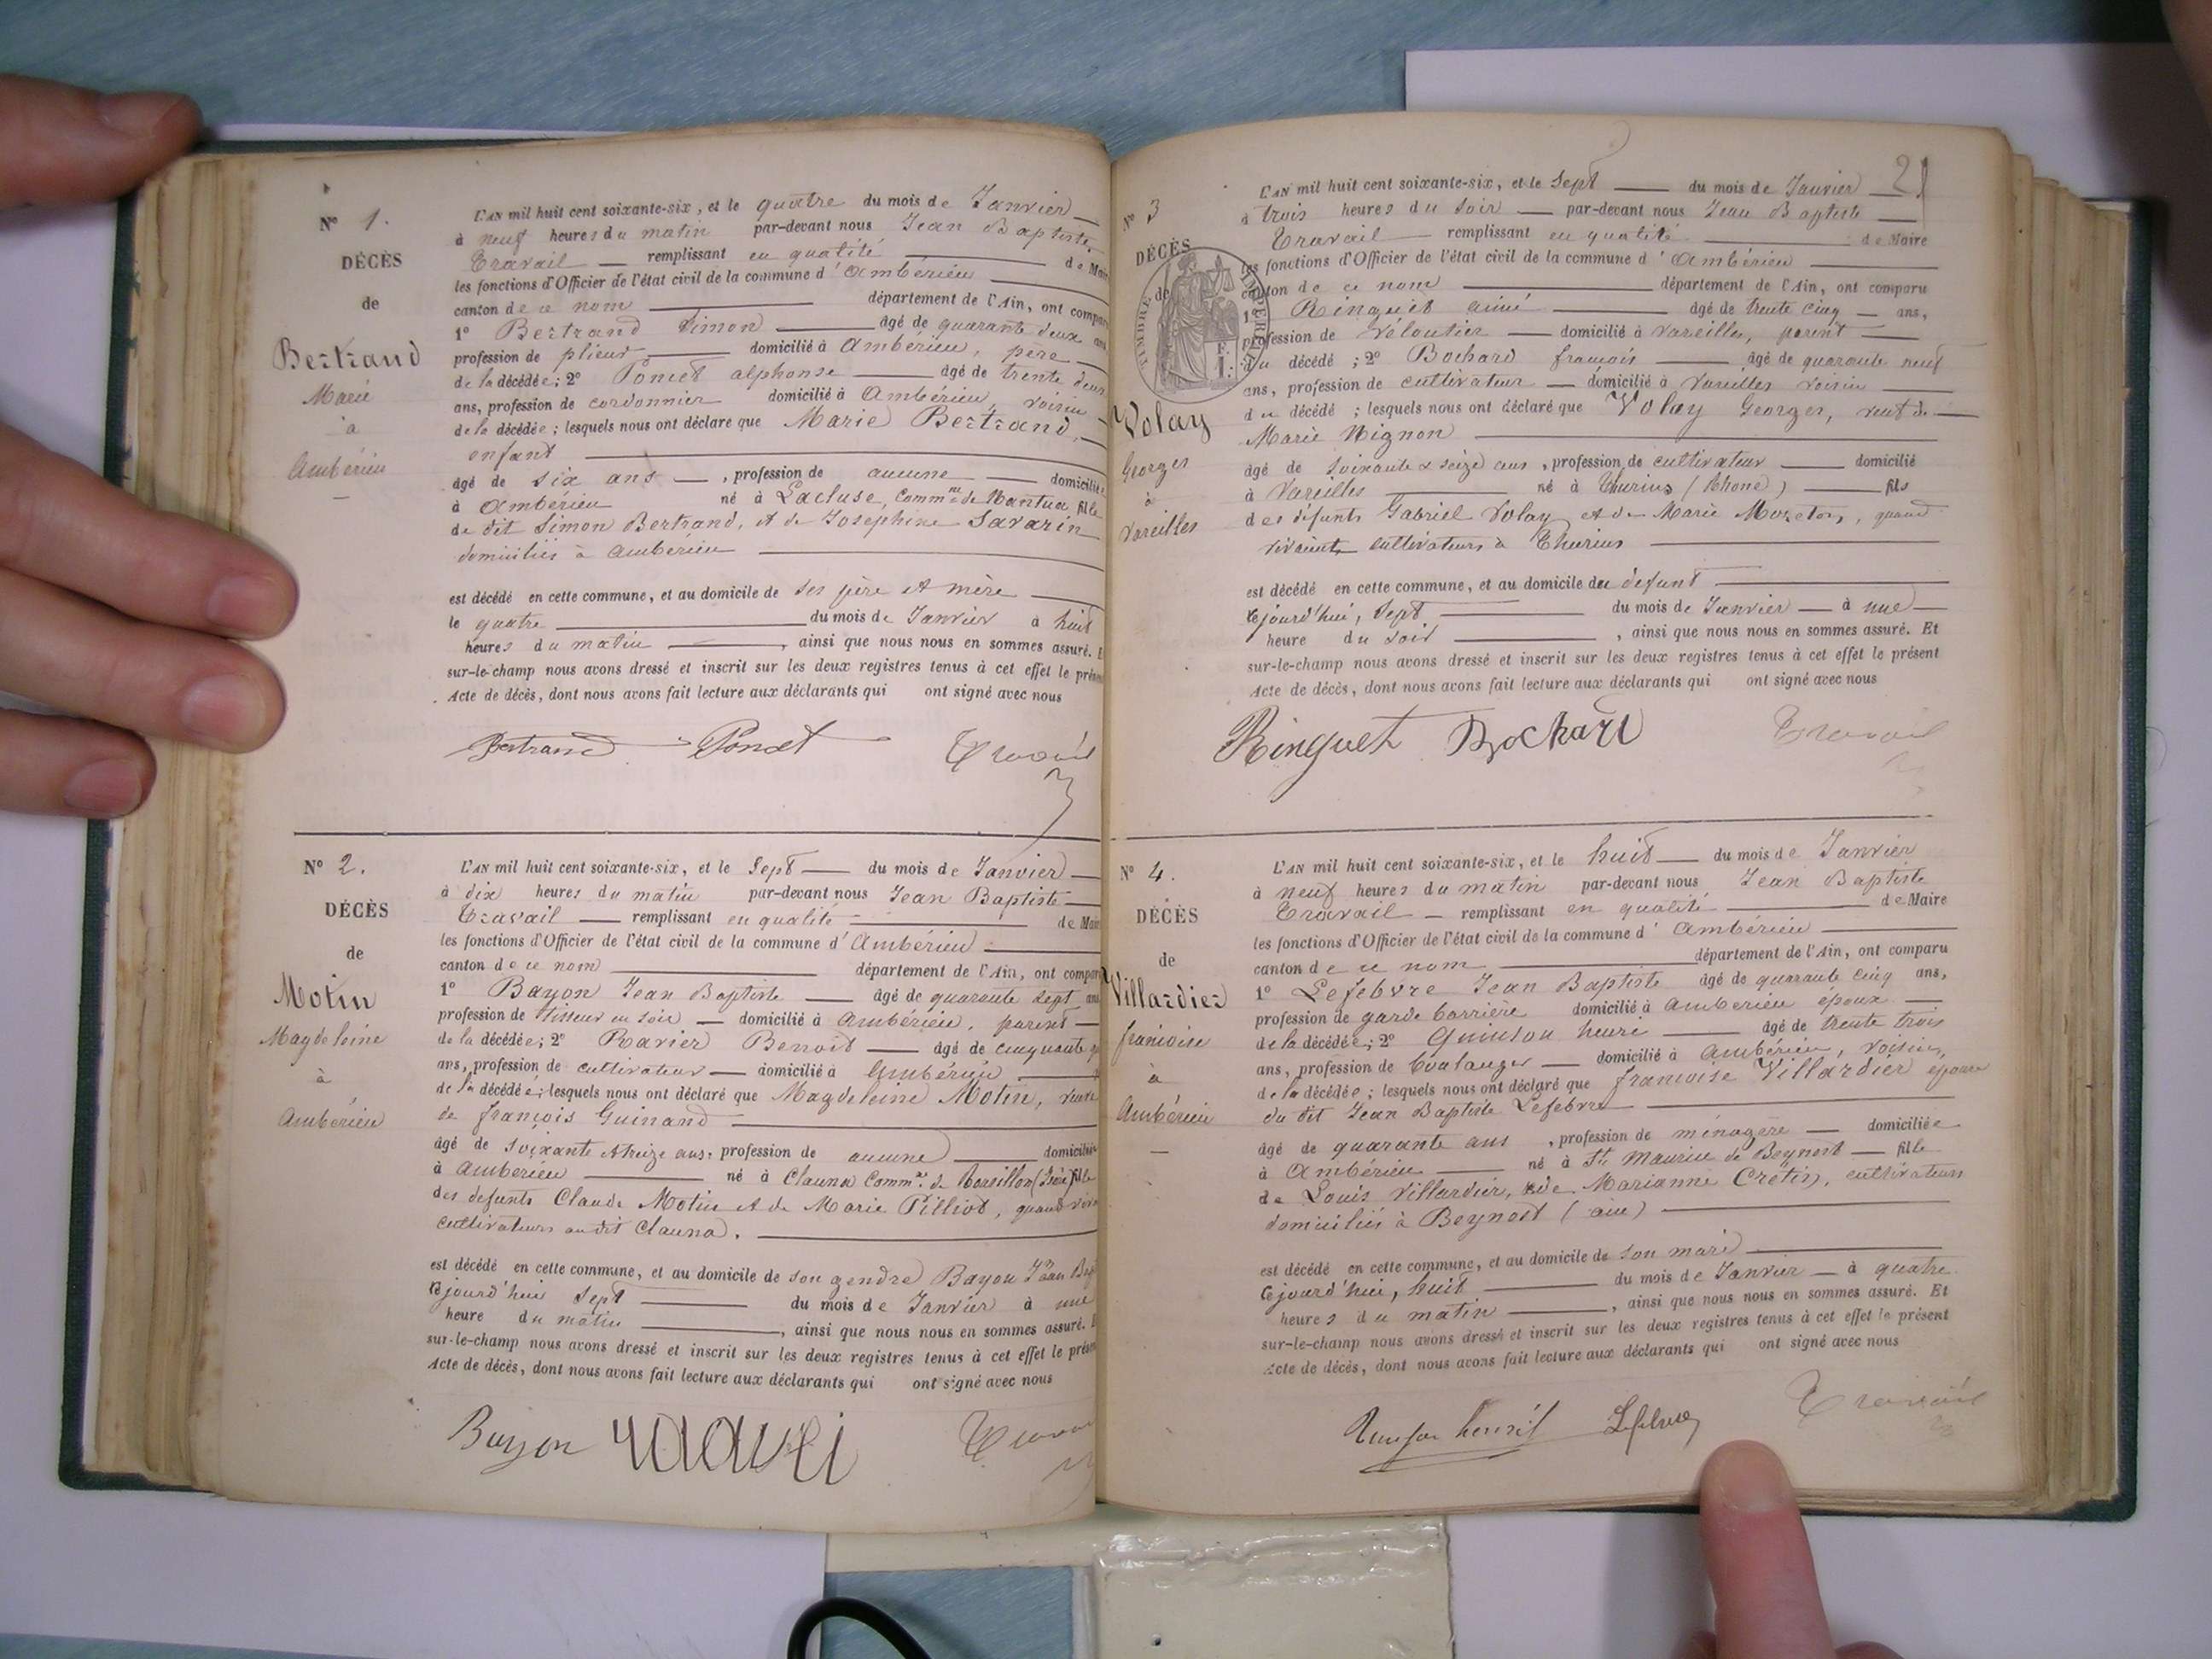 N° 1.
DÉCÈS
de
Bertrand
Marie
à
Ambérieu
L'AN mil huit cent soixante-six, et le quatre du mois de Janvier
à neuf heures du matin par-devant nous Jean Baptiste
Travail remplissant en qualité de Maire
les fonctions d'Officier de l'état civil de la commune d'Ambérieu
canton de ce nom département de l'Ain, ont comparu
1° Bertrand Simon âgé de quarante deux ans
profession de plieur domicilié à Ambérieu, père
de la décédée; 2° Poncet alphonse âgé de trente deux
ans, profession de cordonnier domicilié à Ambérieu, voisin
de la décédée; lesquels nous ont déclaré que Marie Bertrand,
enfant
âgé de six ans, profession de aucune domiciliée
à Ambérieu né à Lacluse, Comm.ne de Nantua, fille
de dit Simon Bertrand, et de Joséphine Savarin
domiciliés à Ambérieu
est décédé en cette commune, et au domicile de ses père et mère
le quatre du mois de Janvier à huit
heures du matin, ainsi que nous nous en sommes assuré. E
sur-le-champ nous avons dressé et inscrit sur les deux registres tenus à cet effet le prése
Acte de décès, dont nous avons fait lecture aux déclarants qui ont signé avec nous
Bertrand Poncet Travail
N° 2.
DÉCÈS
de
Motin
Magdeleine
à
Ambérieu
L'AN mil huit cent soixante-six, et le Sept du mois de Janvier
à dix heures du matin par-devant nous Jean Baptiste
Travail remplissant en qualité de Maire
les fonctions d'Officier de l'état civil de la commune d'Ambérieu
canton de ce nom département de l'Ain, ont comparu
1° Bayon Jean Baptiste âgé de quarante sept ans
profession de tisseur en soie domicilié à Ambérieu, parent
de la décédée; 2° Ravier Benoit âgé de cinquante
ans, profession de cultivateur domicilié à Ambérieu
de la décédée; lesquels nous ont déclaré que Magdeleine Motin, veuve
de françois Guinand
âgé de soixante et treize ans, profession de aucune domiciliée
à Ambérieu né à Clauna Comm.ne de (Isère) fille
des défunts Claude Motin et de Marie Pilliot, quand
cultivateurs au dit Clauna.
est décédé en cette commune, et au domicile de son gendre Bayon Jean Bapt
Cejourd'hui Sept du mois de Janvier à une
heure du matin, ainsi que nous nous en sommes assuré. E
sur-le-champ nous avons dressé et inscrit sur les deux registres tenus à cet effet le prése
Acte de décès, dont nous avons fait lecture aux déclarants qui ont signé avec nous
Bayon Travail
21
N° 3
DÉCÈS
de
TIMBRE IMPERIAL
Volay
Georges
à
Vareilles
L'AN mil huit cent soixante-six, et le Sept du mois de Janvier
à trois heures du soir par-devant nous Jean Baptiste
Travail remplissant en qualité de Maire
les fonctions d'Officier de l'état civil de la commune d'Ambérieu
canton de ce nom département de l'Ain, ont comparu
1° Ringuet aimé âgé de trente cinq ans,
profession de Véloutier domicilié à Vareilles, parent
du décédé; 2° Bochard françois âgé de quarante neuf
ans, profession de cultivateur domicilié à Vareilles voisin
du décédé; lesquels nous ont déclaré que Volay Georges, veuf de
Marie Mignon
âgé de soixante & seize ans, profession de cultivateur domicilié
à Vareilles né à Thurins (Rhone) fils
des défunts Gabriel Volay et de Marie, quand
vivaient cultivateurs à Thurins
est décédé en cette commune, et au domicile du défunt
Cejourd'hui, Sept du mois de Janvier à une
heure du soir, ainsi que nous nous en sommes assuré. Et
sur-le-champ nous avons dressé et inscrit sur les deux registres tenus à cet effet le présent
Acte de décès, dont nous avons fait lecture aux déclarants qui ont signé avec nous
Ringuet Bochard Travail
N° 4.
DÉCÈS
de
Villardier
françoise
à
Ambérieu
L'AN mil huit cent soixante-six, et le huit du mois de Janvier
à neuf heures du matin par-devant nous Jean Baptiste
Travail remplissant en qualité de Maire
les fonctions d'Officier de l'état civil de la commune d'Ambérieu
canton de ce nom département de l'Ain, ont comparu
1° Lefebvre Jean Baptiste âgé de quarante cinq ans,
profession de garde barrière domicilié à Ambérieu époux
de la décédée; 2° Quinson henri âgé de trente trois
ans, profession de boulanger domicilié à Ambérieu, voisin,
de la décédée; lesquels nous ont déclaré que françoise Villardier épouse
du dit Jean Baptiste Lefebvre
âgé de quarante ans, profession de ménagère domiciliée
à Ambérieu né à St Maurice de Beynost fille
de Louis Villardier, & de Marianne Crétin, cultivateurs
domiciliés à Beynost (ain)
est décédé en cette commune, et au domicile de son mari
Cejourd'hui, huit du mois de Janvier à quatre
heures du matin, ainsi que nous nous en sommes assuré. Et
sur-le-champ nous avons dressé et inscrit sur les deux registres tenus à cet effet le présent
Acte de décès, dont nous avons fait lecture aux déclarants qui ont signé avec nous
Quinson henri Lefebvre Travail